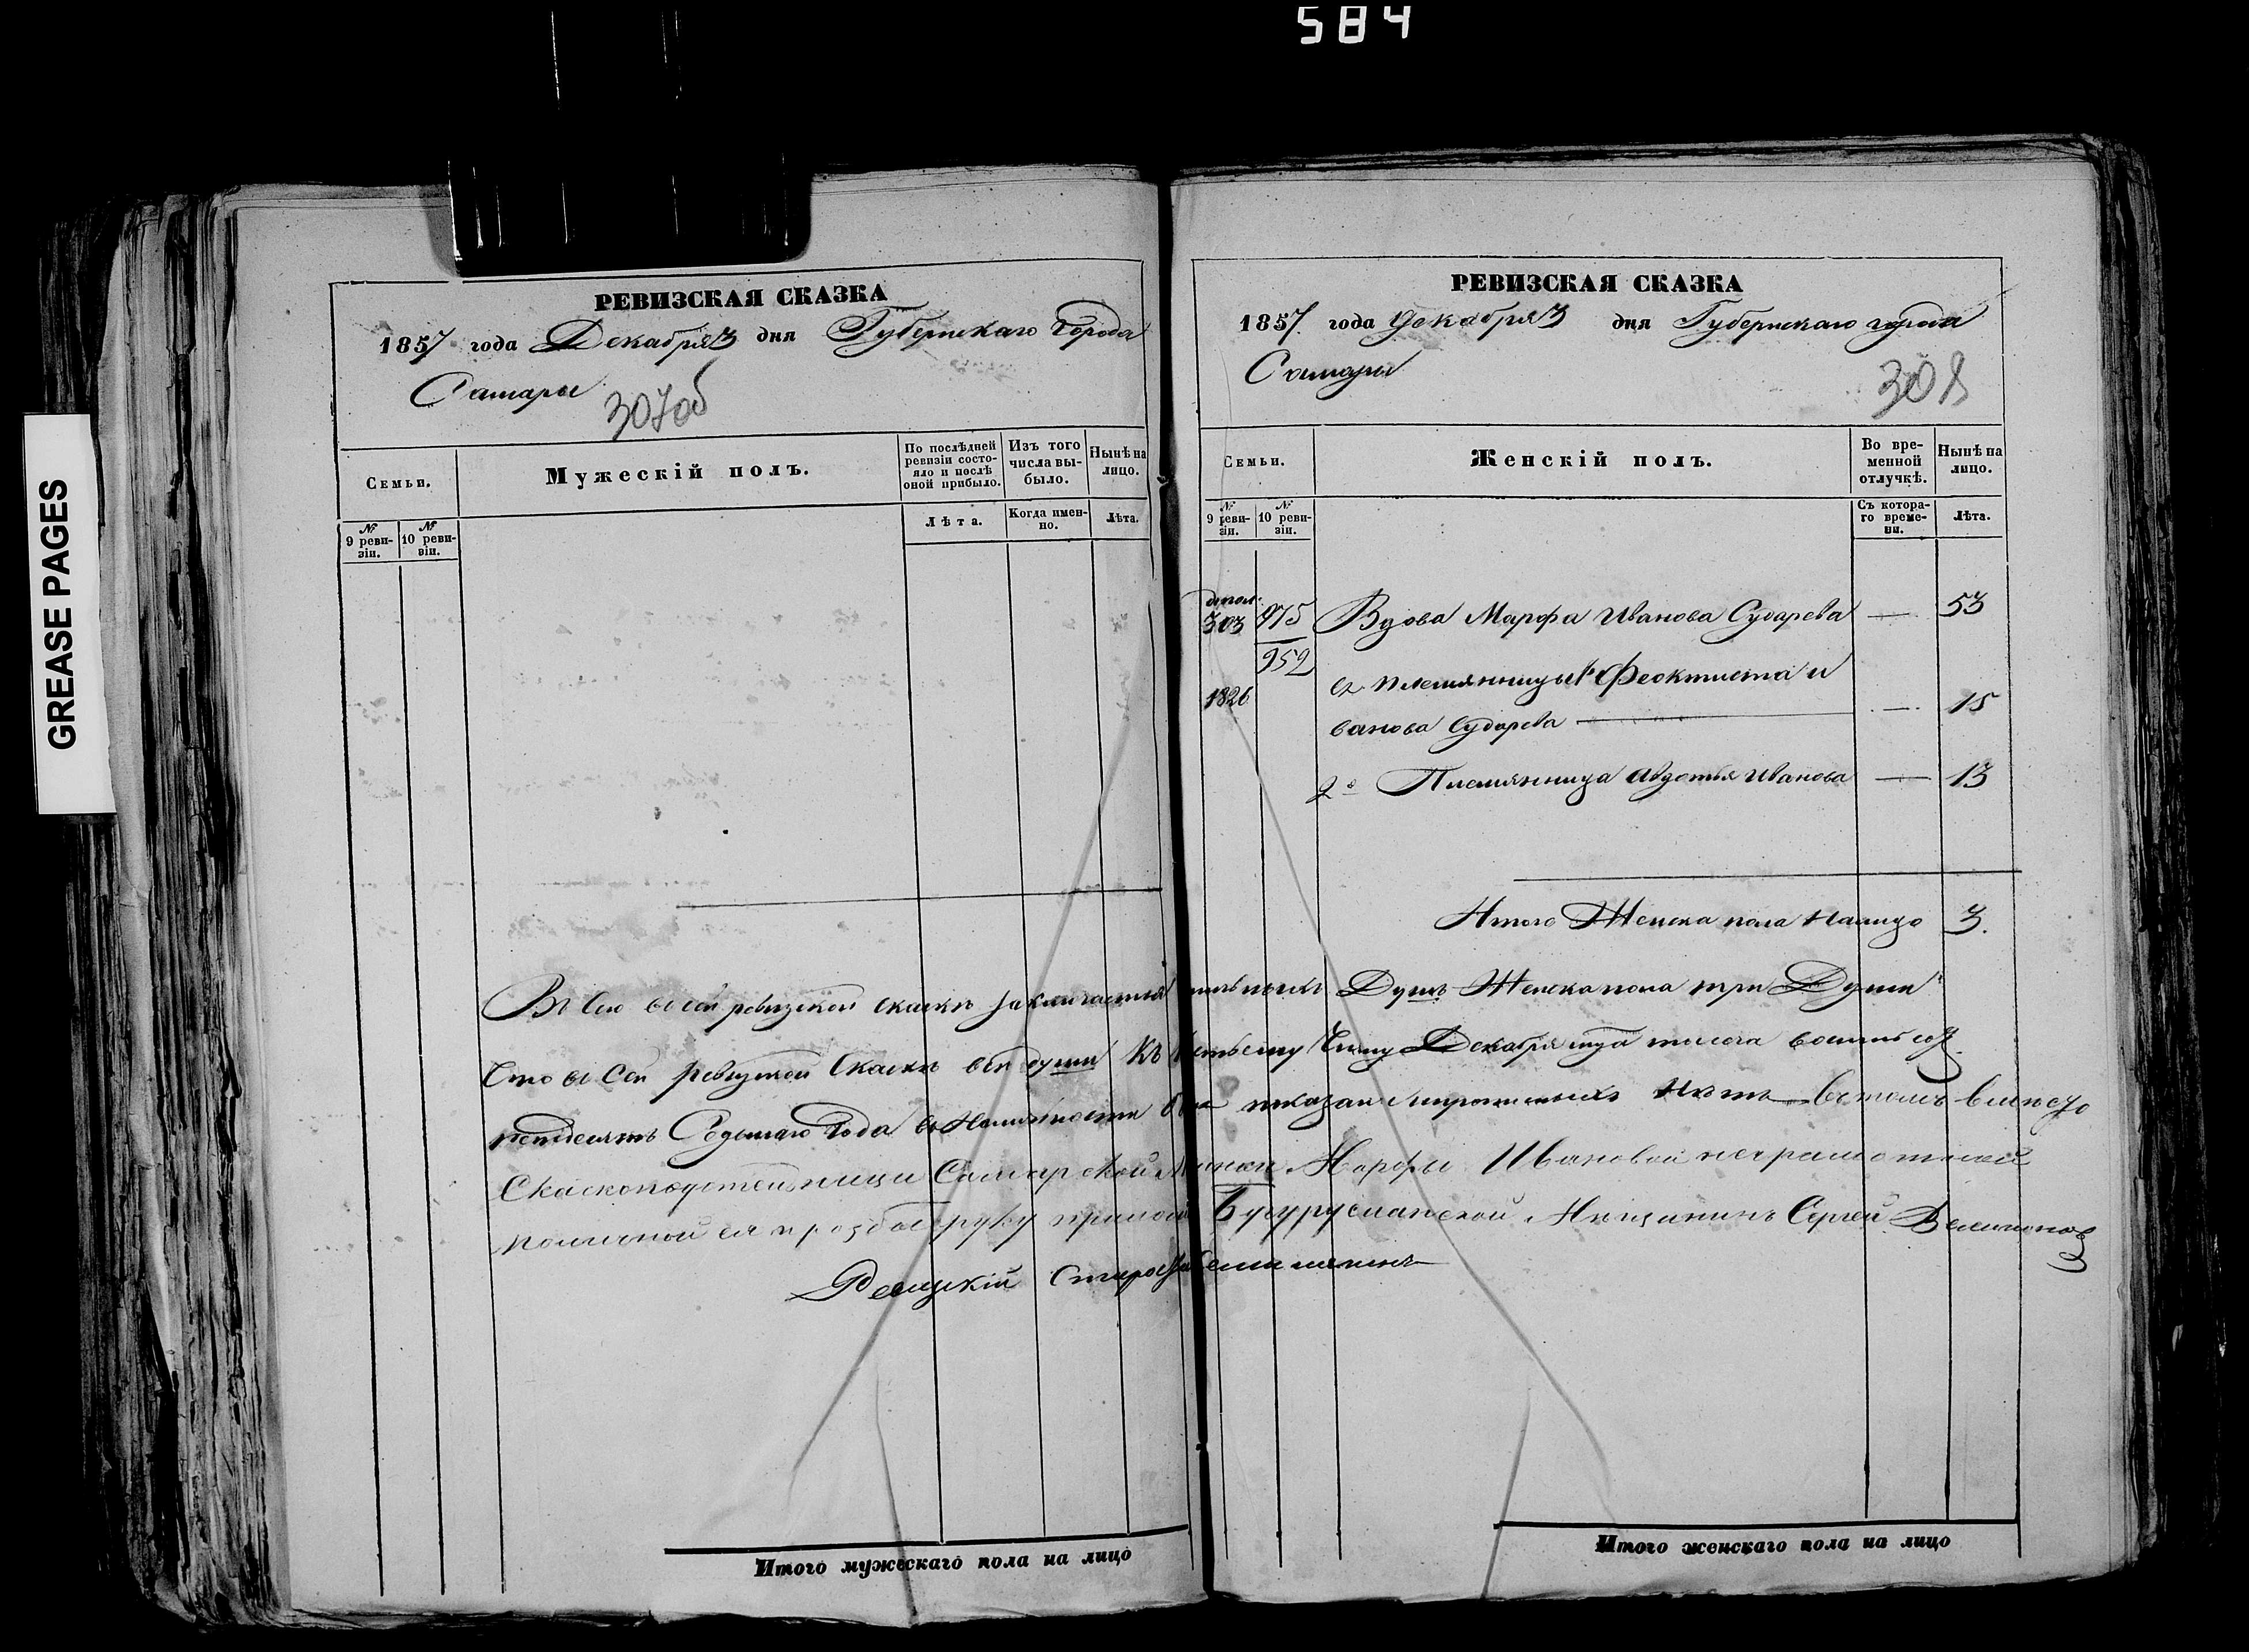 584
GREASE PAGES
РЕВИЗСКАЯ СКАЗКА
1857 года Декабря 3 дня Губернскаго Города
Самары
307об
Семьи.
Мужескій полъ.
По послѣдней ревизіи состояло и послѣ оной прибыло.
Изъ того числа выбыло.
Нынѣ на лицо.
№ 9 ревизіи.
№ 10 ревизіи.
Лѣта.
Когда именно.
Лѣта.
РЕВИЗСКАЯ СКАЗКА
1857. года Декабря 3 дня Губернскаго города
Самары
308
Семьи.
Женскій полъ.
Во временной отлучкѣ.
Нынѣ на лицо.
№ 9 ревизіи.
№ 10 ревизіи.
Съ котораго времени.
Лѣта.
допол.
303 975 Вдова Марфа Иванова Сударева — 53
952
ея племянницы 1 Феоктиста и
1826 ванова Сударева — 15
2я Племянница Авдотья Иванова — 13
Итого Женска пола налицо 3.
Всего въ сей ревизской скаскѣ заключается Душъ Женска пола три Души
Что въ Сей ревизской Скаскѣ всѣ души къ третьему Числу Декабря тысяча восемь сот
пятдесятъ Седьмаго Года въ Наличности показаны прописныхъ нѣтъ въ томъ вмѣсто
Скаскоподательницы Самарской Марфы Ивановой неграмотной
поличной ея прозбѣ руку приложилъ Бугурусланской Мѣщанинъ Сергей
Староста
Итого мужескаго пола на лицо
Итого женскаго пола на лицо